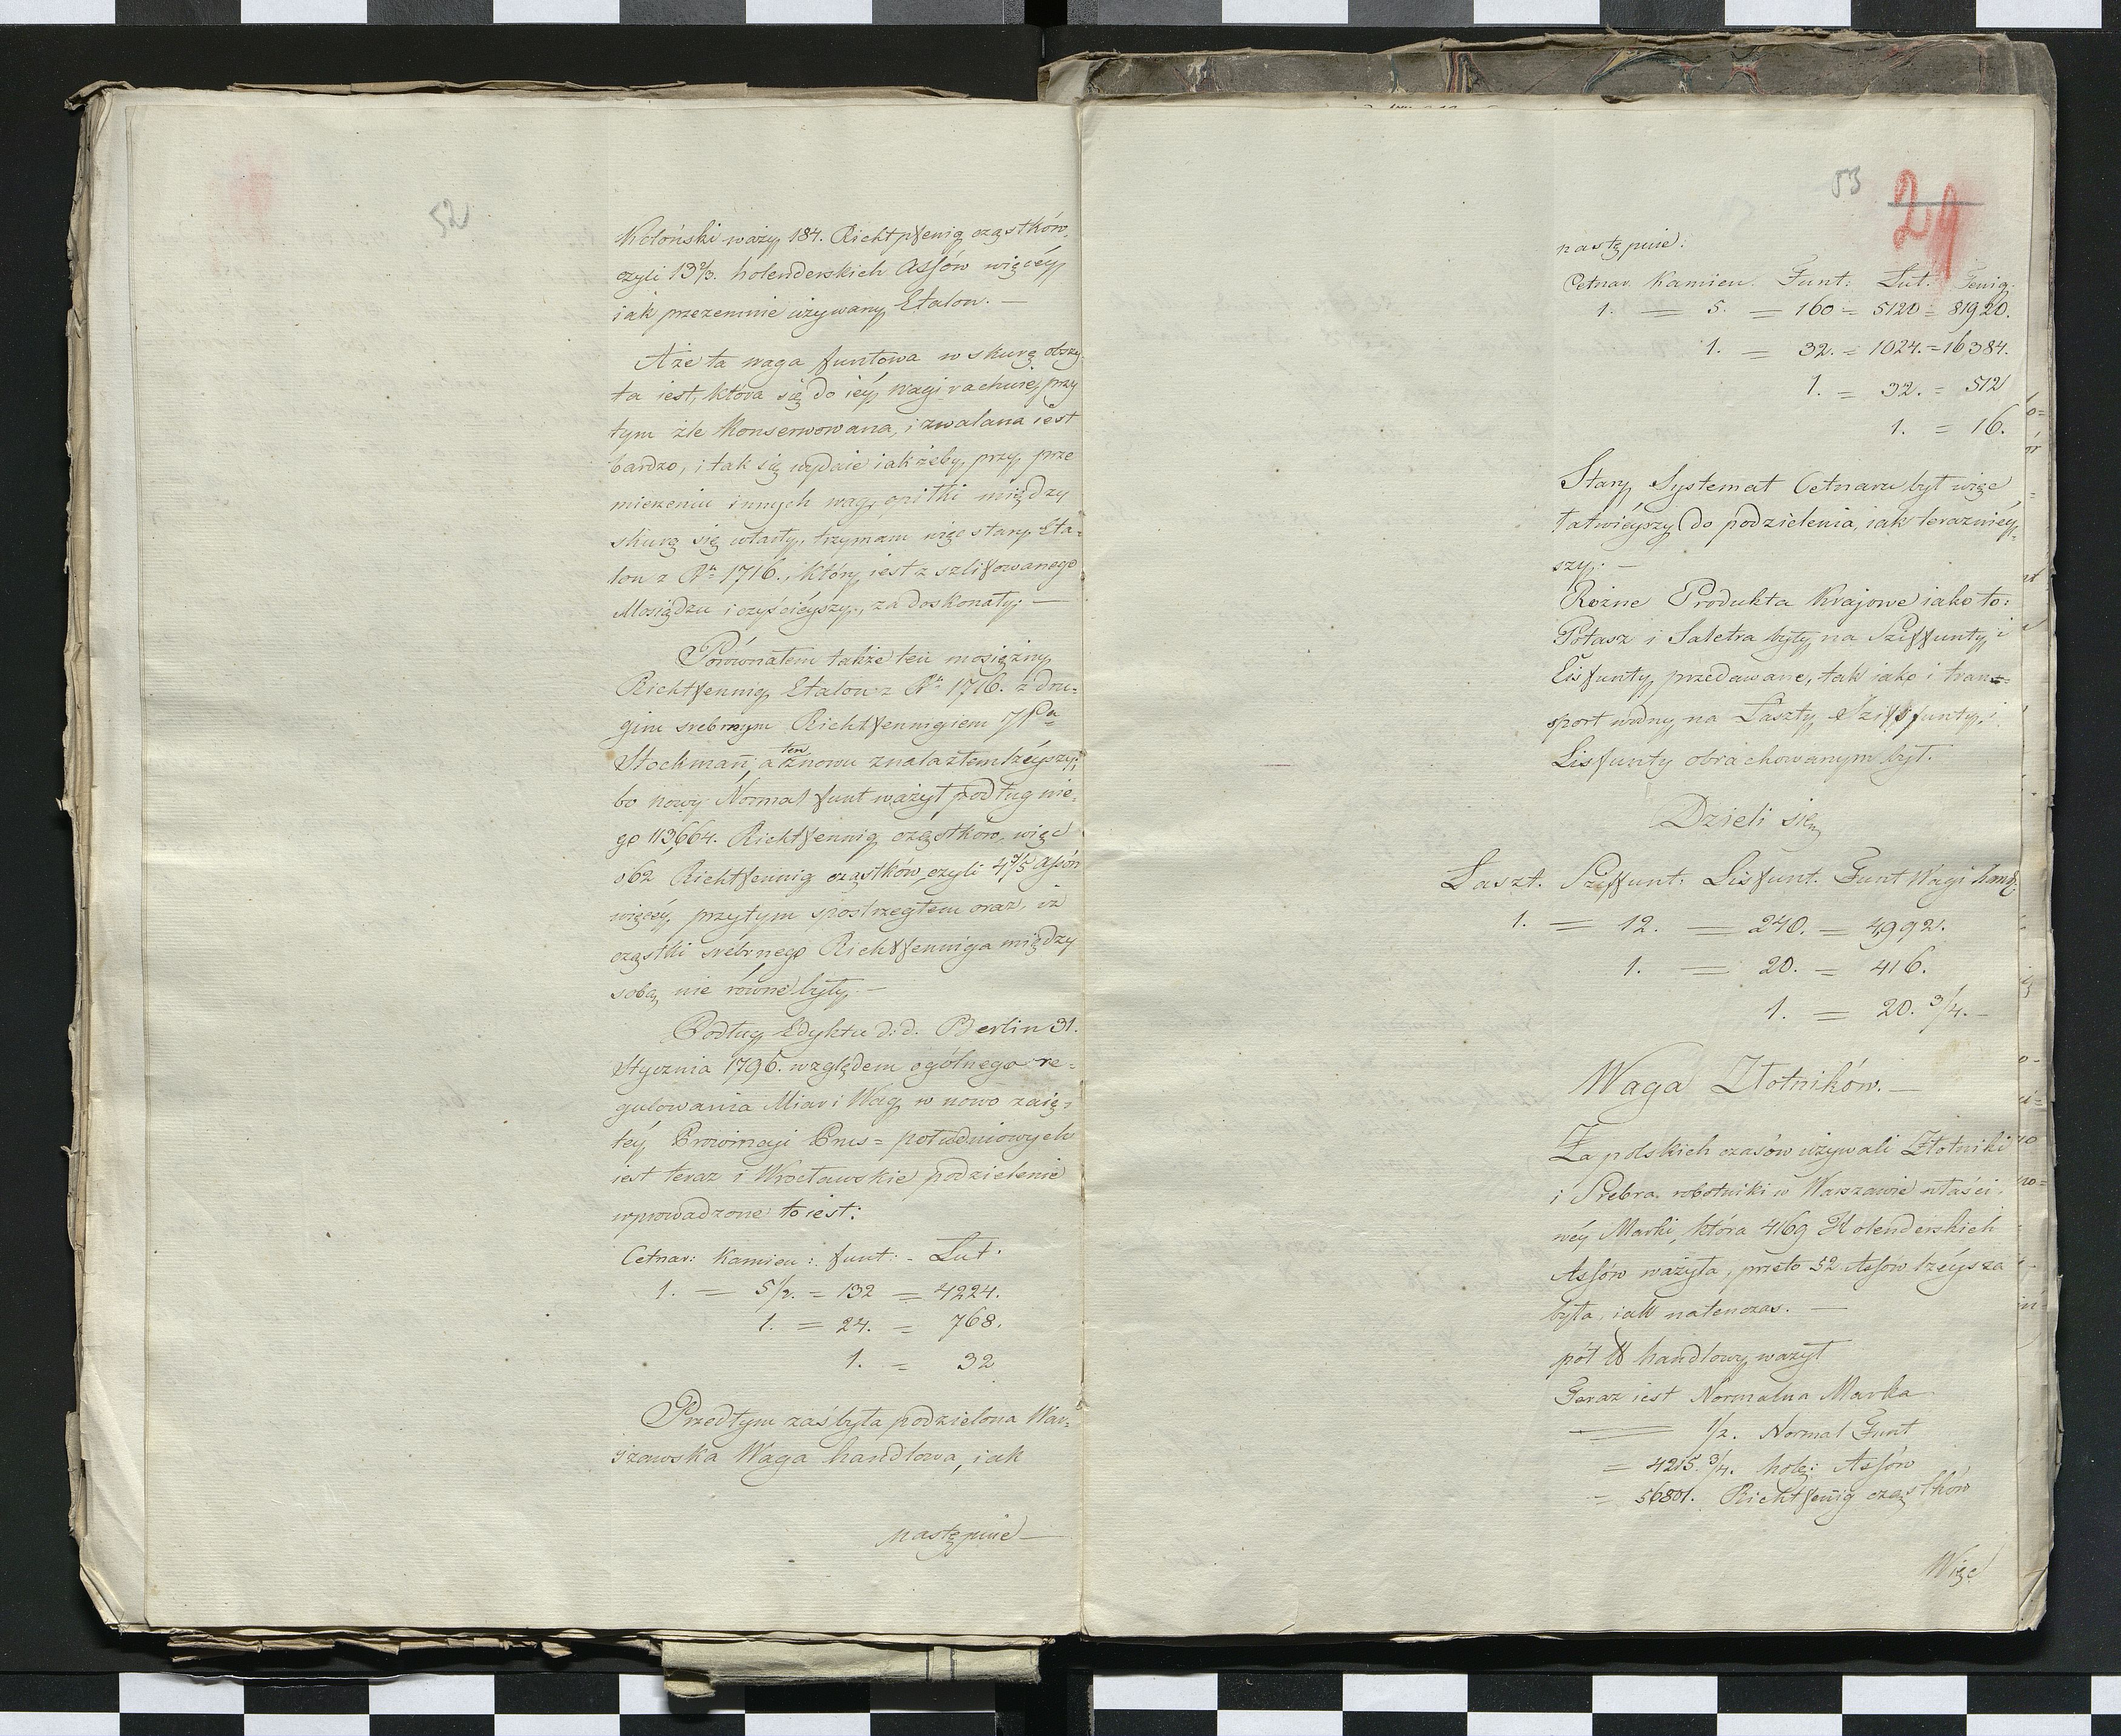 52
Koloński waży 184. Richtpfenig cząstków,
czyli 13 2/3. holenderskich Assów więcéy,
iak przezemnie używany Etalon. —
Aże ta waga funtowa w skurę obszy-
ta iest, która się do iéy wagi rachuie, przy
tym źle konserwowana, i zwalana iest
bardzo, i tak się wydaie iak żeby, przy prze
mierzeniu innych wag, opiłki między
skurę się wtarły, trzymam więc stary Eta-
lon z Ru 1716., który iest z szlifowanego
Mosiądzu i czyściéyszy, za doskonały. —
Porównałem także ten mosiężny
Richtfennig Etalon z Ru 1716. z dru-
gim srebrnym Richtfennigiem
Stockmañ a ten znowu znalazłem lżéyszy,
bo nowy Normal funt ważył podług nie-
go 113,664. Richtfennig cząstków, więc
o 62 Richtfennig cząstków, czyli 4 3/5 Assów
więcéy, przytym spostrzegłem oraz, iż
cząstki srebrnego Richtfenniga między
sobą nie równe były. —
Podług Edyktu d: d. Berlin 31.
Stycznia 1796. względem ogólnego re-
gulowania Miar i Wag w nowo zaię-
téy Prowincyi Prus = południowych
iest teraz i Wrocławskie podzielenie
wprowadzone to iest:
Cetnar: Kamien: funt: - Lut.
1. = 5 1/2. = 132 = 4224.
1. = 24. = 768.
1. = 32
Przedtym zaś była podzielona War-
szawska Waga handlowa, iak
następnie —
53
29
następnie:
Cetnar. Kamien. Funt: Lut: Fenig.
1. = 5. = 160 = 5120 = 81920.
1. = 32. = 1024. = 16384.
1. = 32. = 512
1. = 16.
Stary Systemat Cetnaru był więc
łatwiéyszy do podzielenia, iak teraznéy-
szy. —
Rożne Produkta Krajowe iako to:
Potasz i Saletra były na Sziffunty i
Lisfunty przedawane, tak iako i tran-
sport wodny na Laszty Sziffunty, i
Lisfunty obrachowanym był.
Dzieli się
Laszt. Sziffunt: Lisfunt. Funt Wagi hand:
1. = 12. = 240. = 4,992.
1. = 20. = 416.
1. = 20. 3/4. —
Waga Złotników. —
Za polskich czasów używali Złotniki
i Srebra robotniki w Warszawie właści-
wéy Marki, która 4169 Holenderskich
Assów ważyła, przeto 52 Assów lżéysza
była, iak natenczas. —
pół ℔ handlowy ważył
Teraz iest Normalna Marka
= 1/2. Normal Funt
= 4215. 3/4. hole: Assów
= 56801. Richtfeñig cząstków
Więc